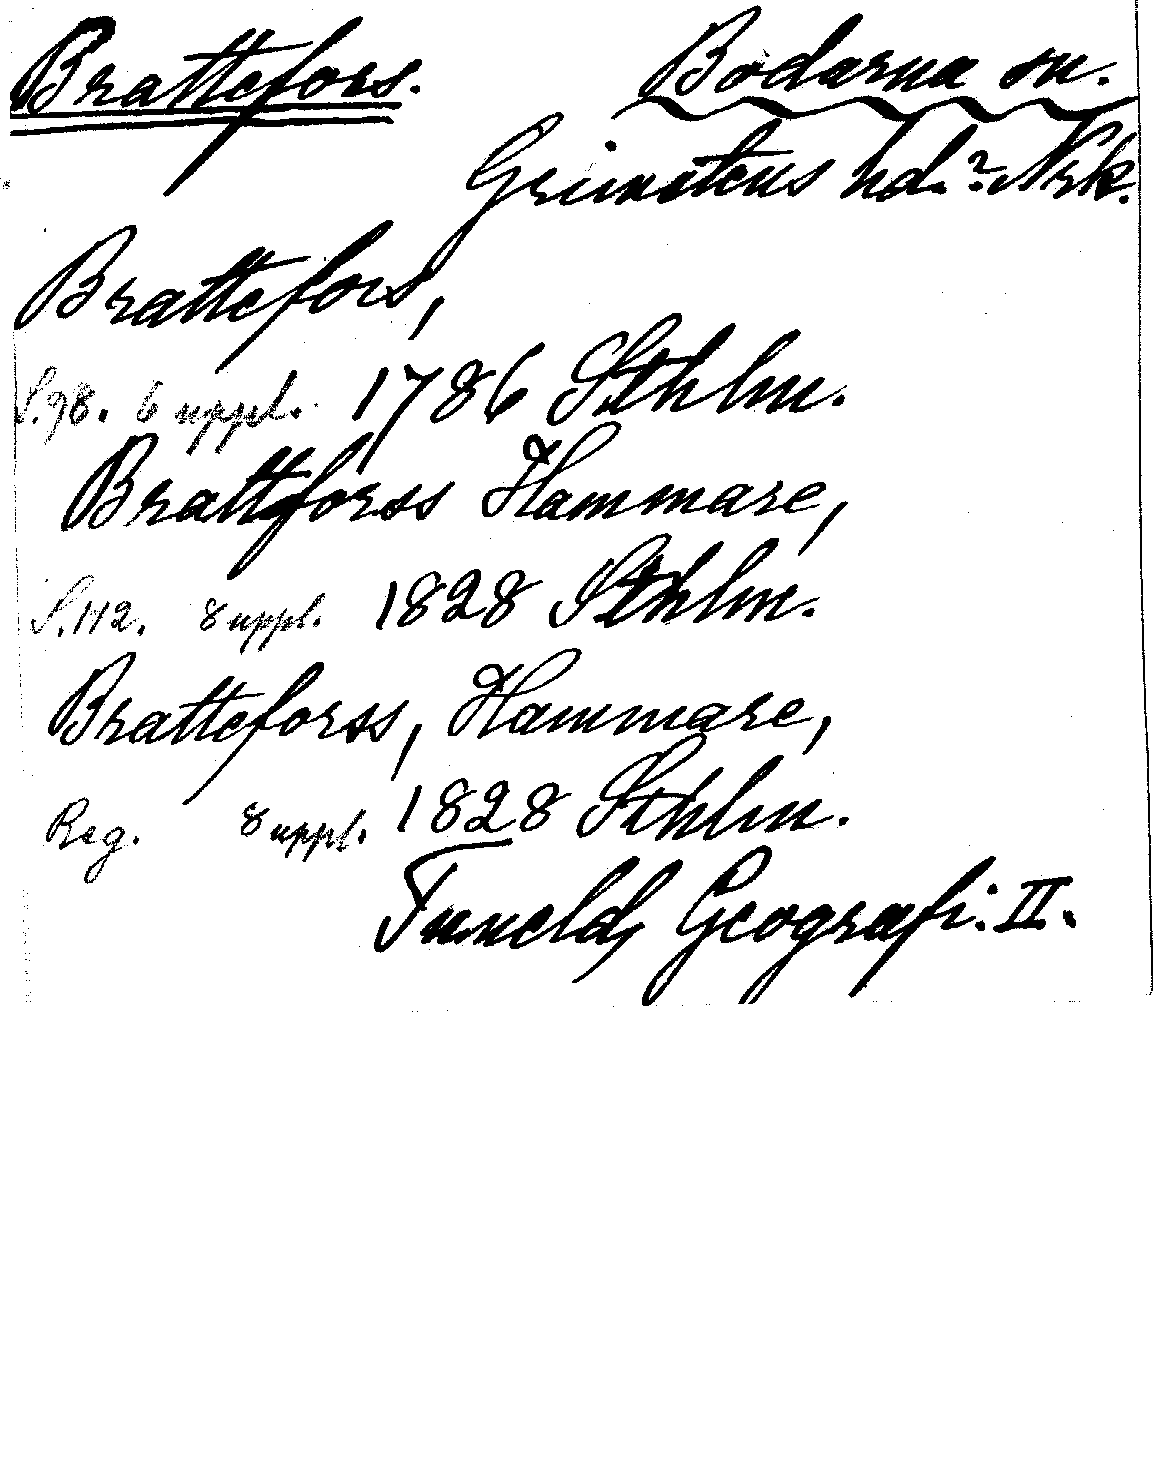 Brattefors. Bodarna sn.
Grimstens hd.? Nrk.
Brattefors,
S. 98. 6 uppl. 1786 Sthlm.
Brattforss Hammare,
S. 112. 8 uppl. 1828 Sthlm.
Bratteforss, Hammare,
Reg. 8 uppl. 1828 Sthlm.
Tunelds Geografi. II.